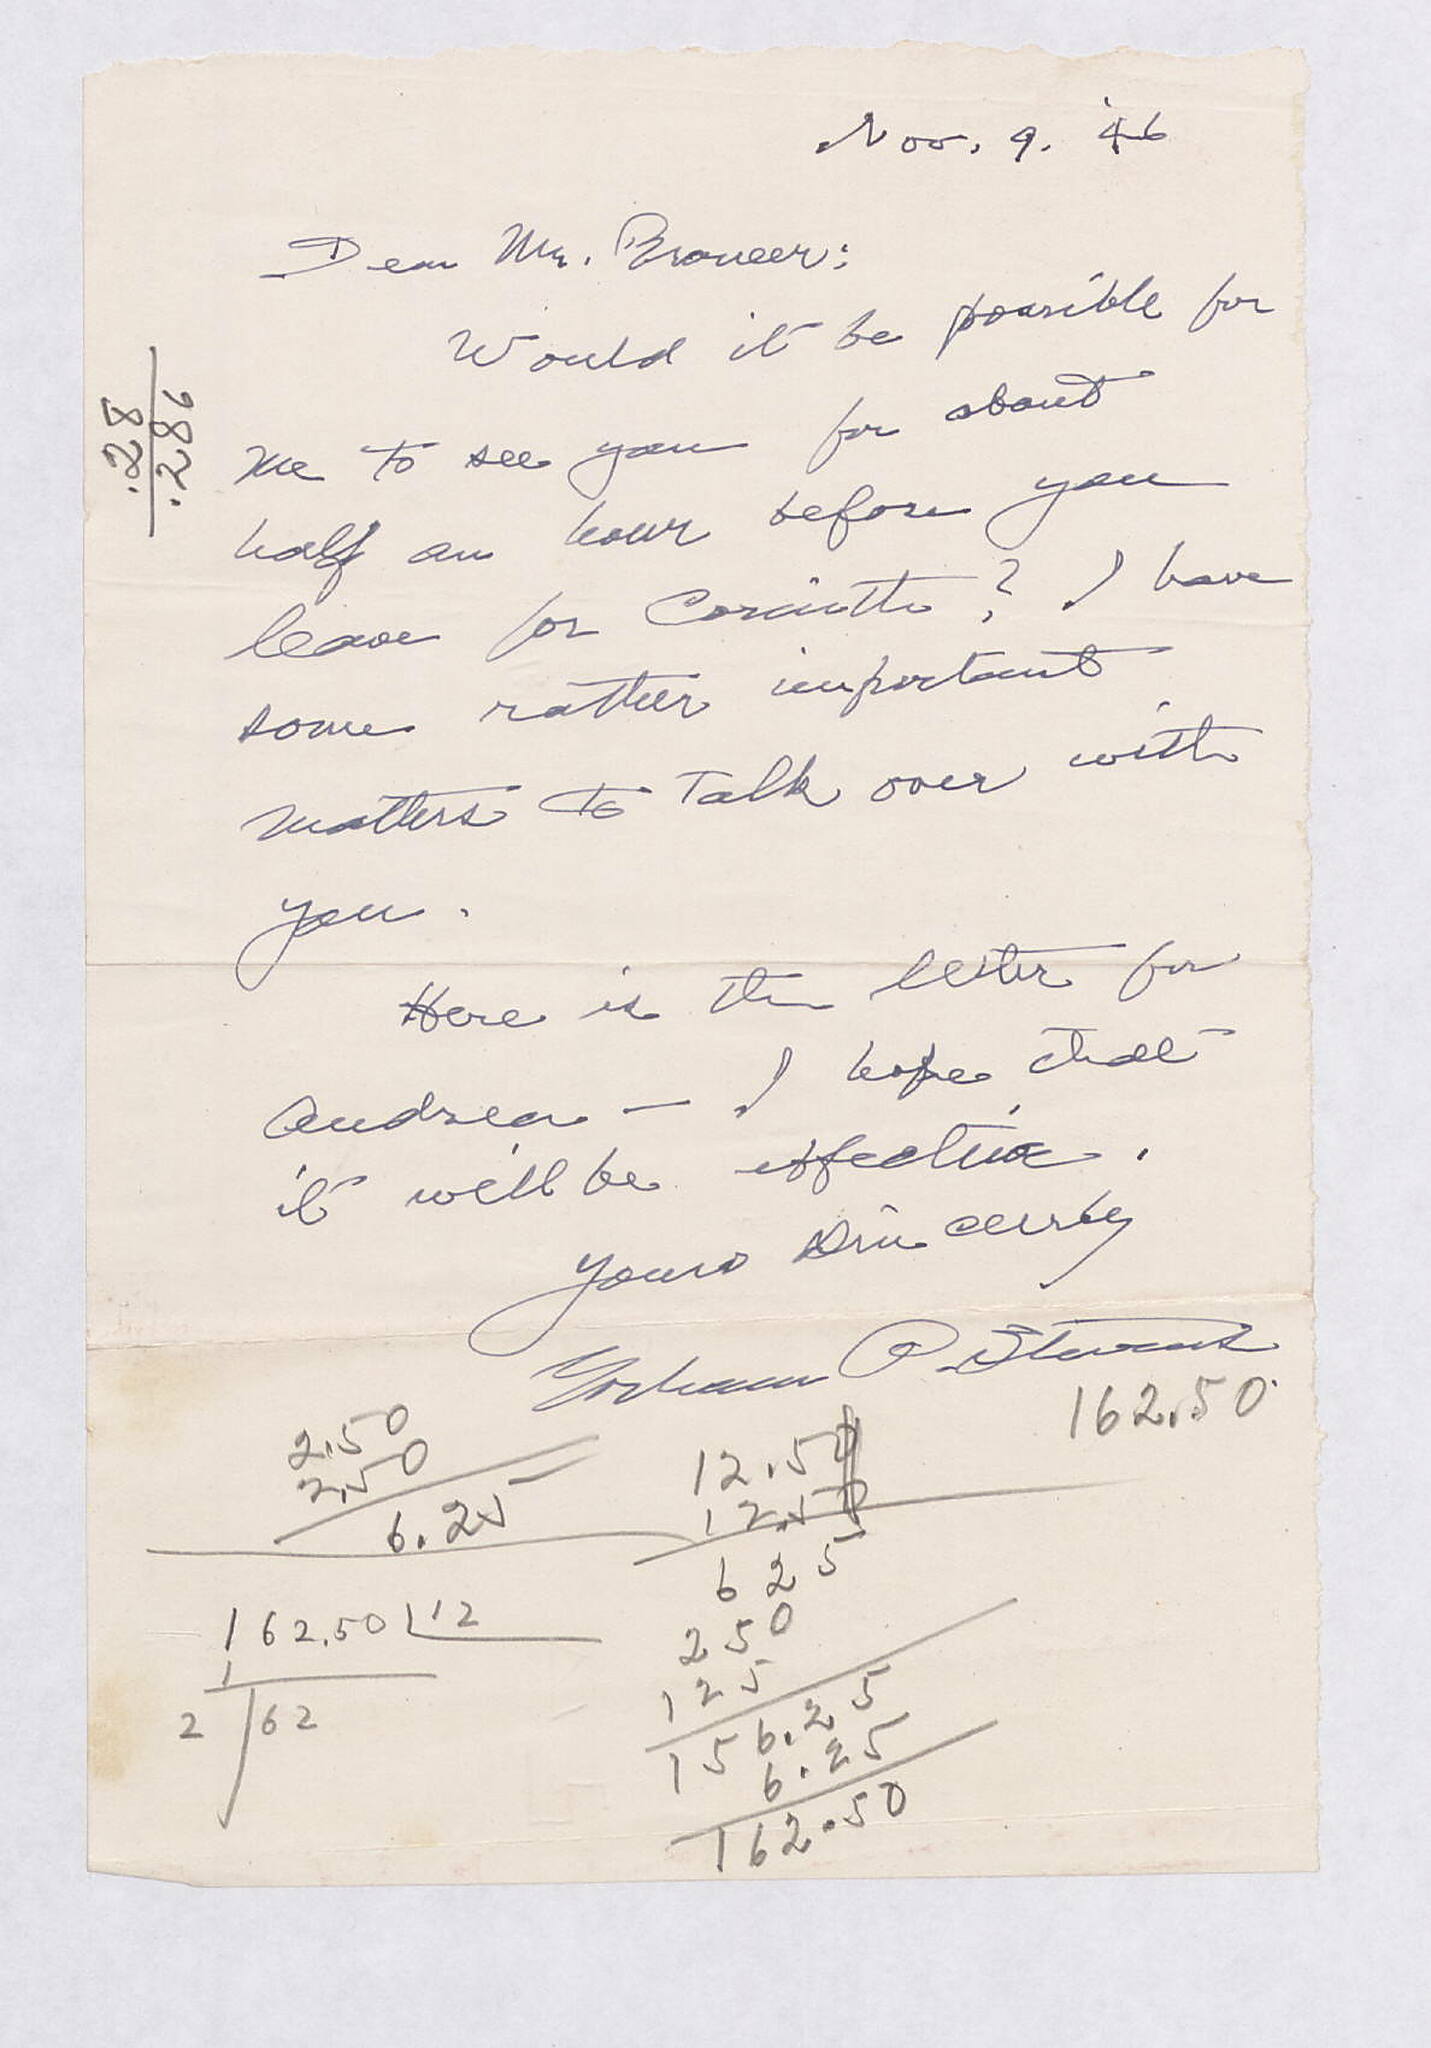 Nov. 9. '46
Dear Mr. Broneer:
Would it be possible for
me to see you for about
half an hour before you
leave for Corinth? I have
some rather important
matters to talk over with
you.
Here is the letter for
Andrea — I hope that
it will be effective.
Yours sincerely
Gorham P. Stevens
162.50
.28
.286
2.50
2.50
6.25
12.50
12.50
625
250
125
156.25
6.25
162.50
162.50 12
1
2 62